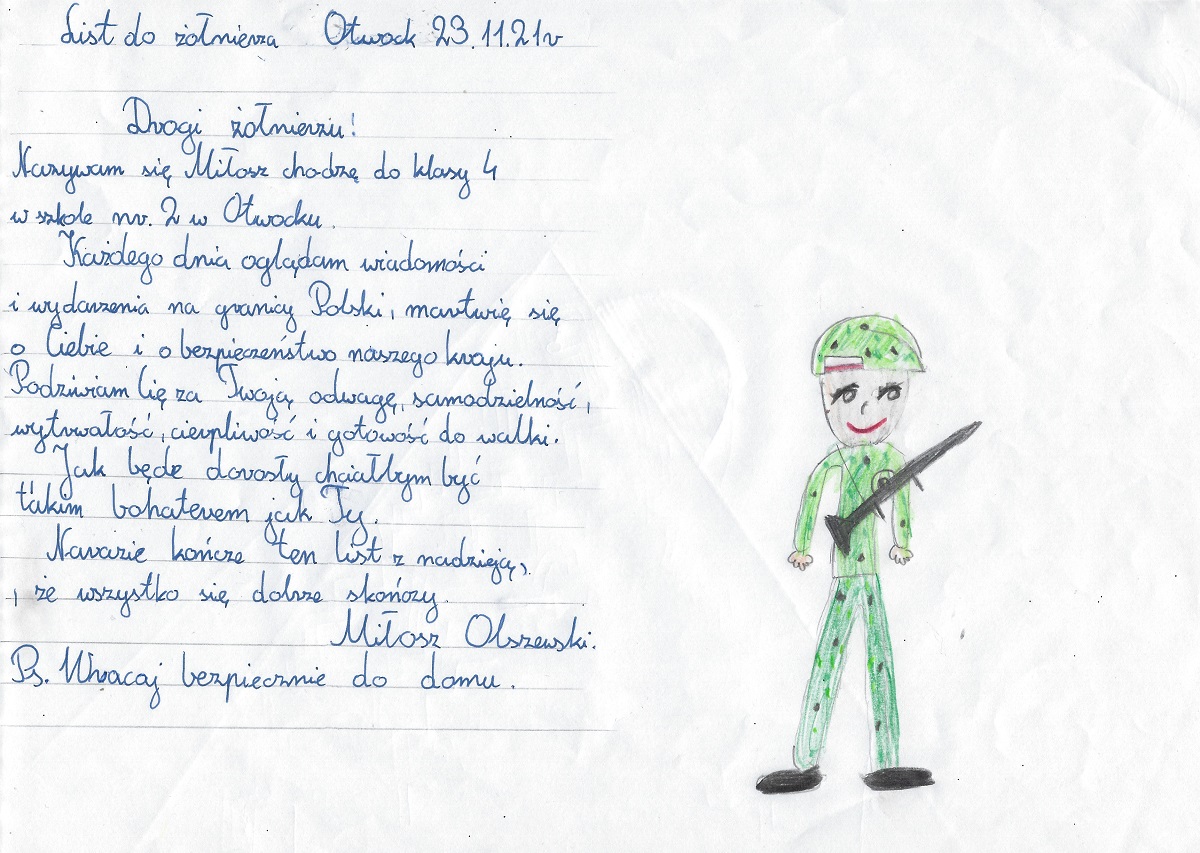 List do żołnierza Otwock 23.11.21r
Drogi żołnierzu!
Nazywam się Miłosz chodzę do klasy 4
w szkole nr. 2 w Otwocku.
Każdego dnia oglądam wiadomości
i wydarzenia na granicy Polski, martwię się
o Ciebie i o bezpieczeństwo naszego kraju.
Podziwiam Cię za Twoją odwagę, samodzielność,
wytrwałość, cierpliwość i gotowość do walki.
Jak będe dorosły chciałbym być
takim bohaterem jak Ty.
Narazie kończe ten list z nadzieją,
, że wszystko się dobrze skończy.
Miłosz Olszewski.
Ps. Wracaj bezpiecznie do domu.